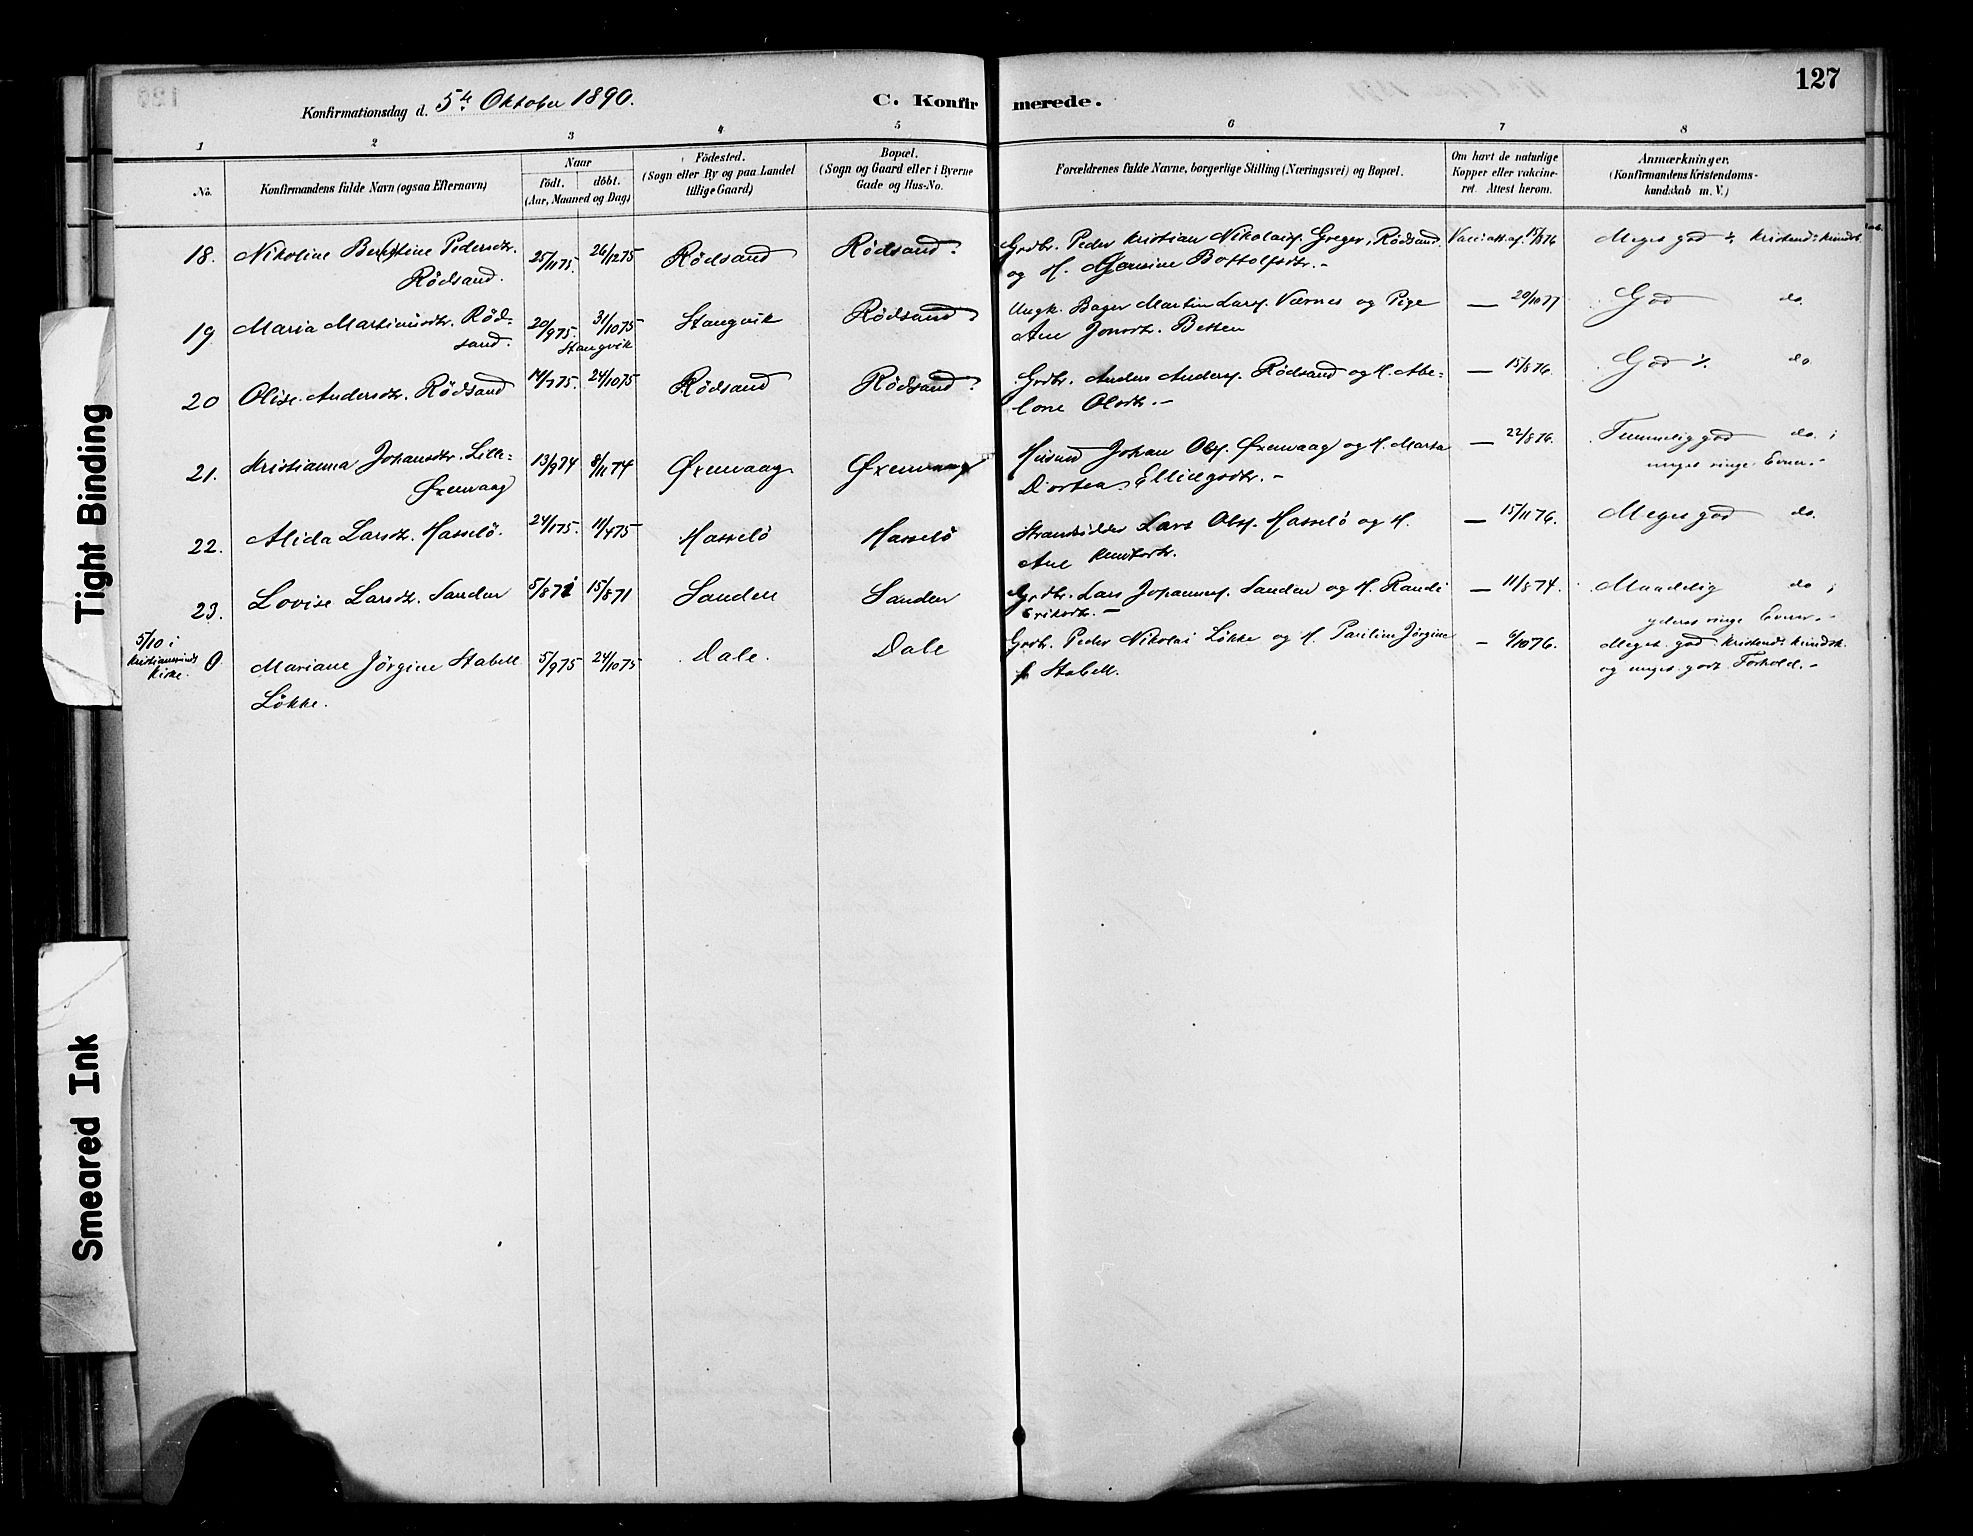 127
Konfirmationsdag d. 5te Oktober 1890. C. Konfirmerede.
1 2 3 4 5 6 7 8
No. Konfirmandens fulde Navn (ogsaa Efternavn) Naar födt. döbt. (Aar, Maaned og Dag) Födested. (Sogn eller By og paa Landet tillige Gaard) Bopæl. (Sogn og Gaard eller i Byerne Gade og Hus-No. Forældrenes fulde Navne, borgerlige Stilling (Næringsvei) og Bopæl. Om havt de naturlige Kopper eller vakcineret. Attest herom. Anmærkninger. (Konfirmandens Kristendomskundskab m. V.)
18. Nikoline Pedersdtr. 25/11 75. 26/12 75 Rödsand Rödsand. Grdbr. Peder Kristian Nikolais. Greger, Rödsand Vacc: att. af 15/8 76 Meget god Kristend: kundsk.
Rödsand. og H.
19 Maria Martinusdtr. Röd- 20/9 75. 31/10 75 Stangvik Rödsand Ungk. Bager Martin Lars. Værnes og Pige — 29/10 77 God do.
sand. Stangvik Ane Jonsdtr. Betten
20 Olise Andersdtr. Rödsand 14/7 75. 24/10 75 Rödsand Rödsand. Grdbr. Anders Anders. Rödsand og H. Abe- — 15/8 76. God do
lone Olsdtr. —
21. Kristianna Johansdtr. Lille- 13/9 74 8/11 74 Øxenvaag Øxenvaag Husmd Johan Ols. Øxenvaag og H. Marta — 22/8 76. Temmelig god do. ;
Øxenvaag Dortea Ellingsdtr. — meget ringe Evner. —
22. Alida Larsdtr. Hasselö. 24/1 75. 11/4 75 Hasselö Hasselö Strandsidder Lars Ols. Hasselö og H. — 15/11 76. Meget god do.
Ane Knutsdtr.
23. Lovise Larsdtr. Sanden 5/8 71 15/8 71 Sanden Sanden Grdbr. Lars Johanness. Sanden og H. Randi — 11/8 74. Maadelig do ;
Eriksdtr. — yderst ringe Evner. —
5/10 i Kristianssunds Kirke. 0 Mariane Jörgine Stabell 5/9 75 24/10 75 Dale. Dale Grdbr. Peder Nikolai Lökke og H. Pauline Jörgine — 6/10 76. Meget god Kristend: kundsk.
Lökke. f. Stabell. og meget godt Forhold. —
Tight Binding
Smeared Ink